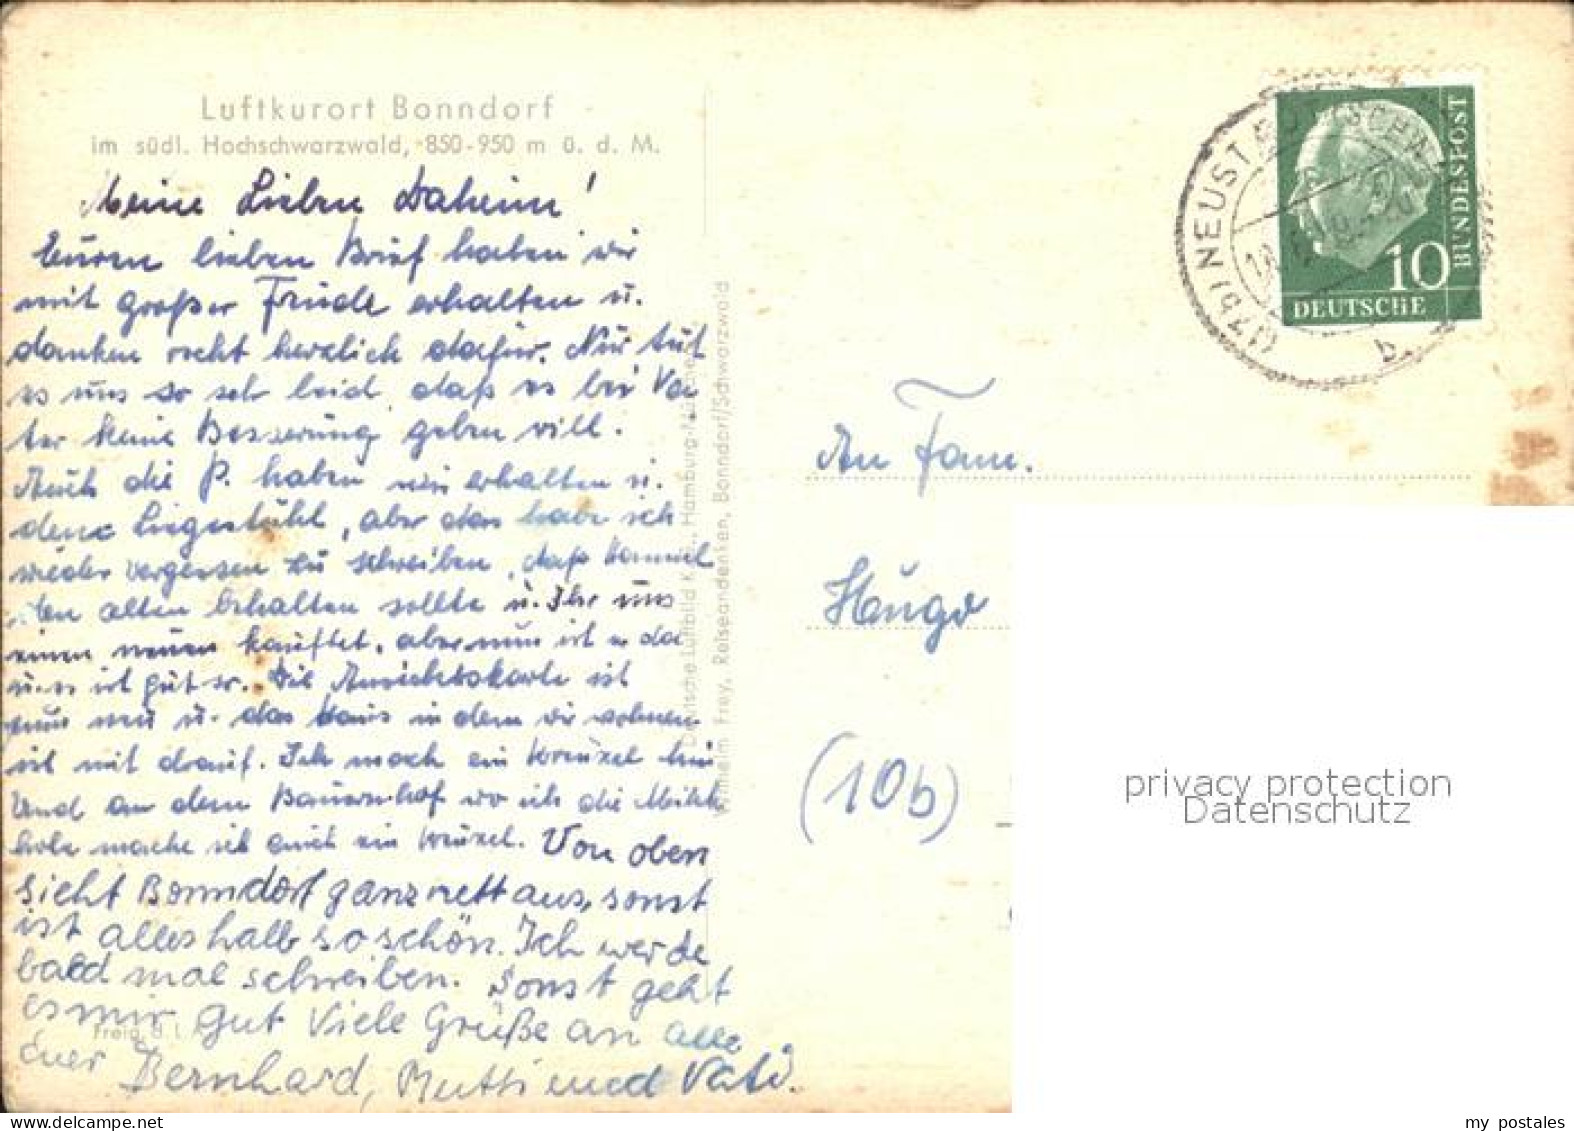 Luftkurort Bonndorf
im südl. Hochschwarzwald, 850-950 m ü. d. M.
Meine Lieben Daheim!
Euren lieben Brief haben wir
mit großer Freude erhalten u.
danken recht herzlich dafür. Nur tut
es uns so sehr leid, daß es bei Va
ter keine Besserung geben will.
Auch die P. haben wir erhalten u.
den Liegestuhl, aber das habe ich
wieder vergessen zu schreiben, daß
den alten behalten sollte u. Ihr uns
einen neuen kauftet, aber nun ist er da
u. es ist gut so. Die Ansichtskarte ist
nun neu u. das Haus in dem wir wohnen
ist mit drauf. Ich mach ein Kreuzel hin
Und an dem Bauernhof wo ich die Milch
hole mache ich auch ein Kreuzel. Von oben
sieht Bonndorf ganz nett aus, sonst
ist alles halb so schön. Ich werde
bald mal schreiben. Sonst geht
es mir gut Viele Grüße an alle
euer Bernhard, Mutti und Vati.
Freig.
Deutsche Luftbild K.G., Hamburg-München
Wilhelm Frey, Reiseandenken, Bonndorf/Schwarzwald
(17b) NEUSTADT (SCHW
b
DEUTSCHE
10
BUNDESPOST
An Fam.
Hugo
(10b)
privacy protection
Datenschutz
my postales